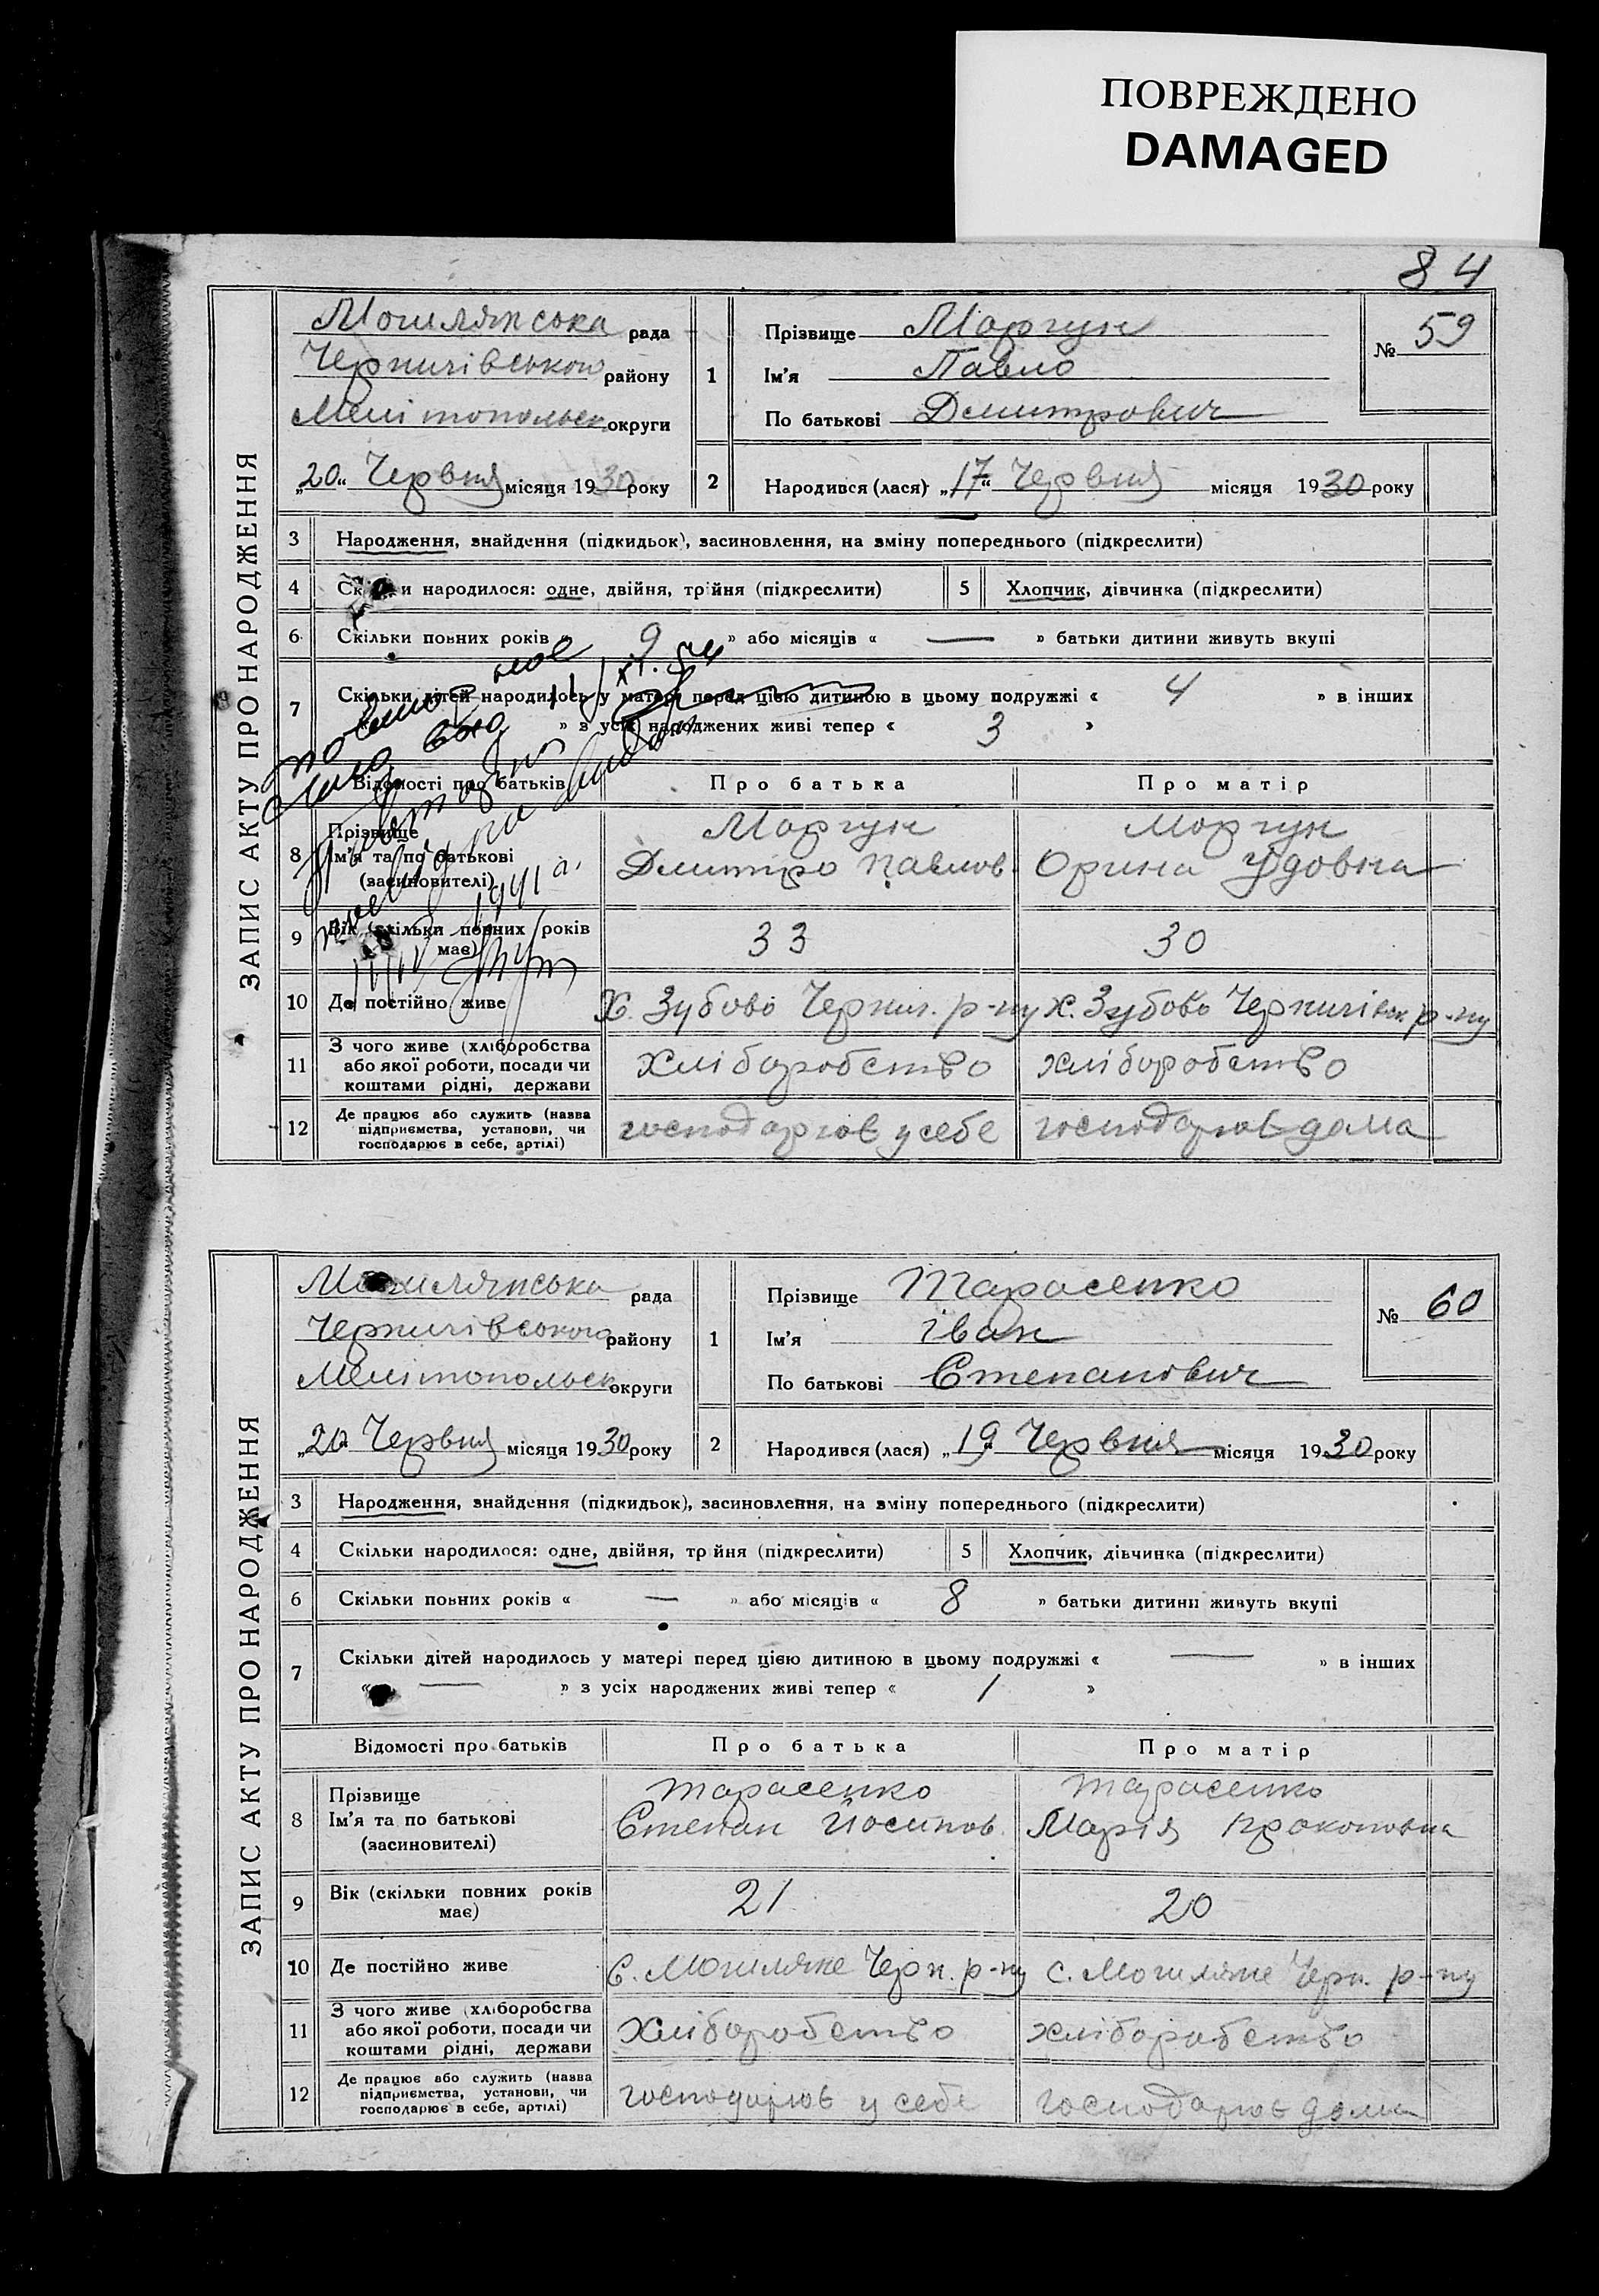 ПОВРЕЖДЕНО
DAMAGED
84
ЗАПИС АКТУ ПРО НАРОДЖЕННЯ
Могилянська рада
Чернигівського району
Мелітопольск округи
„20“ Червня місяця 1930 року
1 Прізвище Моргун
Ім'я Павло
По батькові Дмитрович
№ 59
2 Народився (лася) „17“ Червня місяця 1930 року
3 Народження, знайдення (підкидьок), засиновлення, на зміну попереднього (підкреслити)
4 Ск и народилося: одне, двійня, трійня (підкреслити) 5 Хлопчик, дівчинка (підкреслити)
6 Скільки повних років « 9 » або місяців « — » батьки дитини живуть вкупі
7 Скільки дітей народилось у матері перед цією дитиною в цьому подружжі « 4 » в інших
» з усіх народжених живі тепер « 3 »
Відомості про батьків Про батька Про матір
8 Прізвище
Ім'я та по батькові
(засиновителі)
Моргун
Дмитро Павлов.
Моргун
Орина
1941
9 Вік (скільки повних років має) 33 30
10 Де постійно живе Х. Зубово Черниг. р-ну Х. Зубово Чернигівск. р-ну
11 З чого живе (хліборобства
або якої роботи, посади чи
коштами рідні, держави
хліборобство хліборобство
12 Де працює або служить (назва
підприємства, установи, чи
господарює в себе, артілі)
господарює у себе господарює дома
ЗАПИС АКТУ ПРО НАРОДЖЕННЯ
Могилянська рада
Чернигівського району
Мелітопольск округи
„20“ Червня місяця 1930 року
1 Прізвище Тарасенко
Ім'я Іван
По батькові Степанович
№ 60
2 Народився (лася) „19“ Червня місяця 1930 року
3 Народження, знайдення (підкидьок), засиновлення, на зміну попереднього (підкреслити)
4 Скільки народилося: одне, двійня, трійня (підкреслити) 5 Хлопчик, дівчинка (підкреслити)
6 Скільки повних років « — » або місяців « 8 » батьки дитини живуть вкупі
7 Скільки дітей народилось у матері перед цією дитиною в цьому подружжі « — » в інших
« — » з усіх народжених живі тепер « 1 »
Відомості про батьків Про батька Про матір
8 Прізвище
Ім'я та по батькові
(засиновителі)
Тарасенко
Степан Йосипов.
Тарасенко
Марія Прокоповна
9 Вік (скільки повних років має) 21 20
10 Де постійно живе С. Могиляне Черн. р-ну С. Могиляне Черн. р-ну
11 З чого живе (хліборобства
або якої роботи, посади чи
коштами рідні, держави
Хліборобство хліборобство
12 Де працює або служить (назва
підприємства, установи, чи
господарює в себе, артілі)
господарює у себе господарює дома